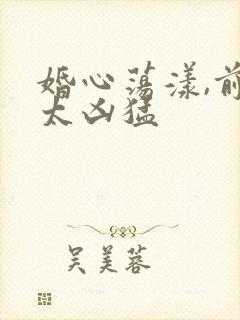 婚心荡漾,前
太凶猛
吴美蓉